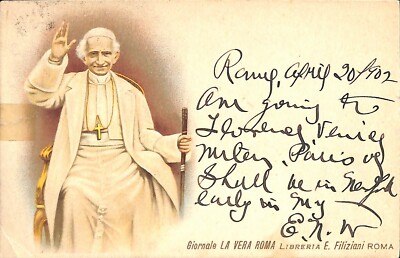 Rome, April 20/902
Am going to
Florence, Venice
Milan, Paris &
Shall be in New York
early in My
E. N. W
Giornale LA VERA ROMA LIBRERIA E. Filiziani ROMA